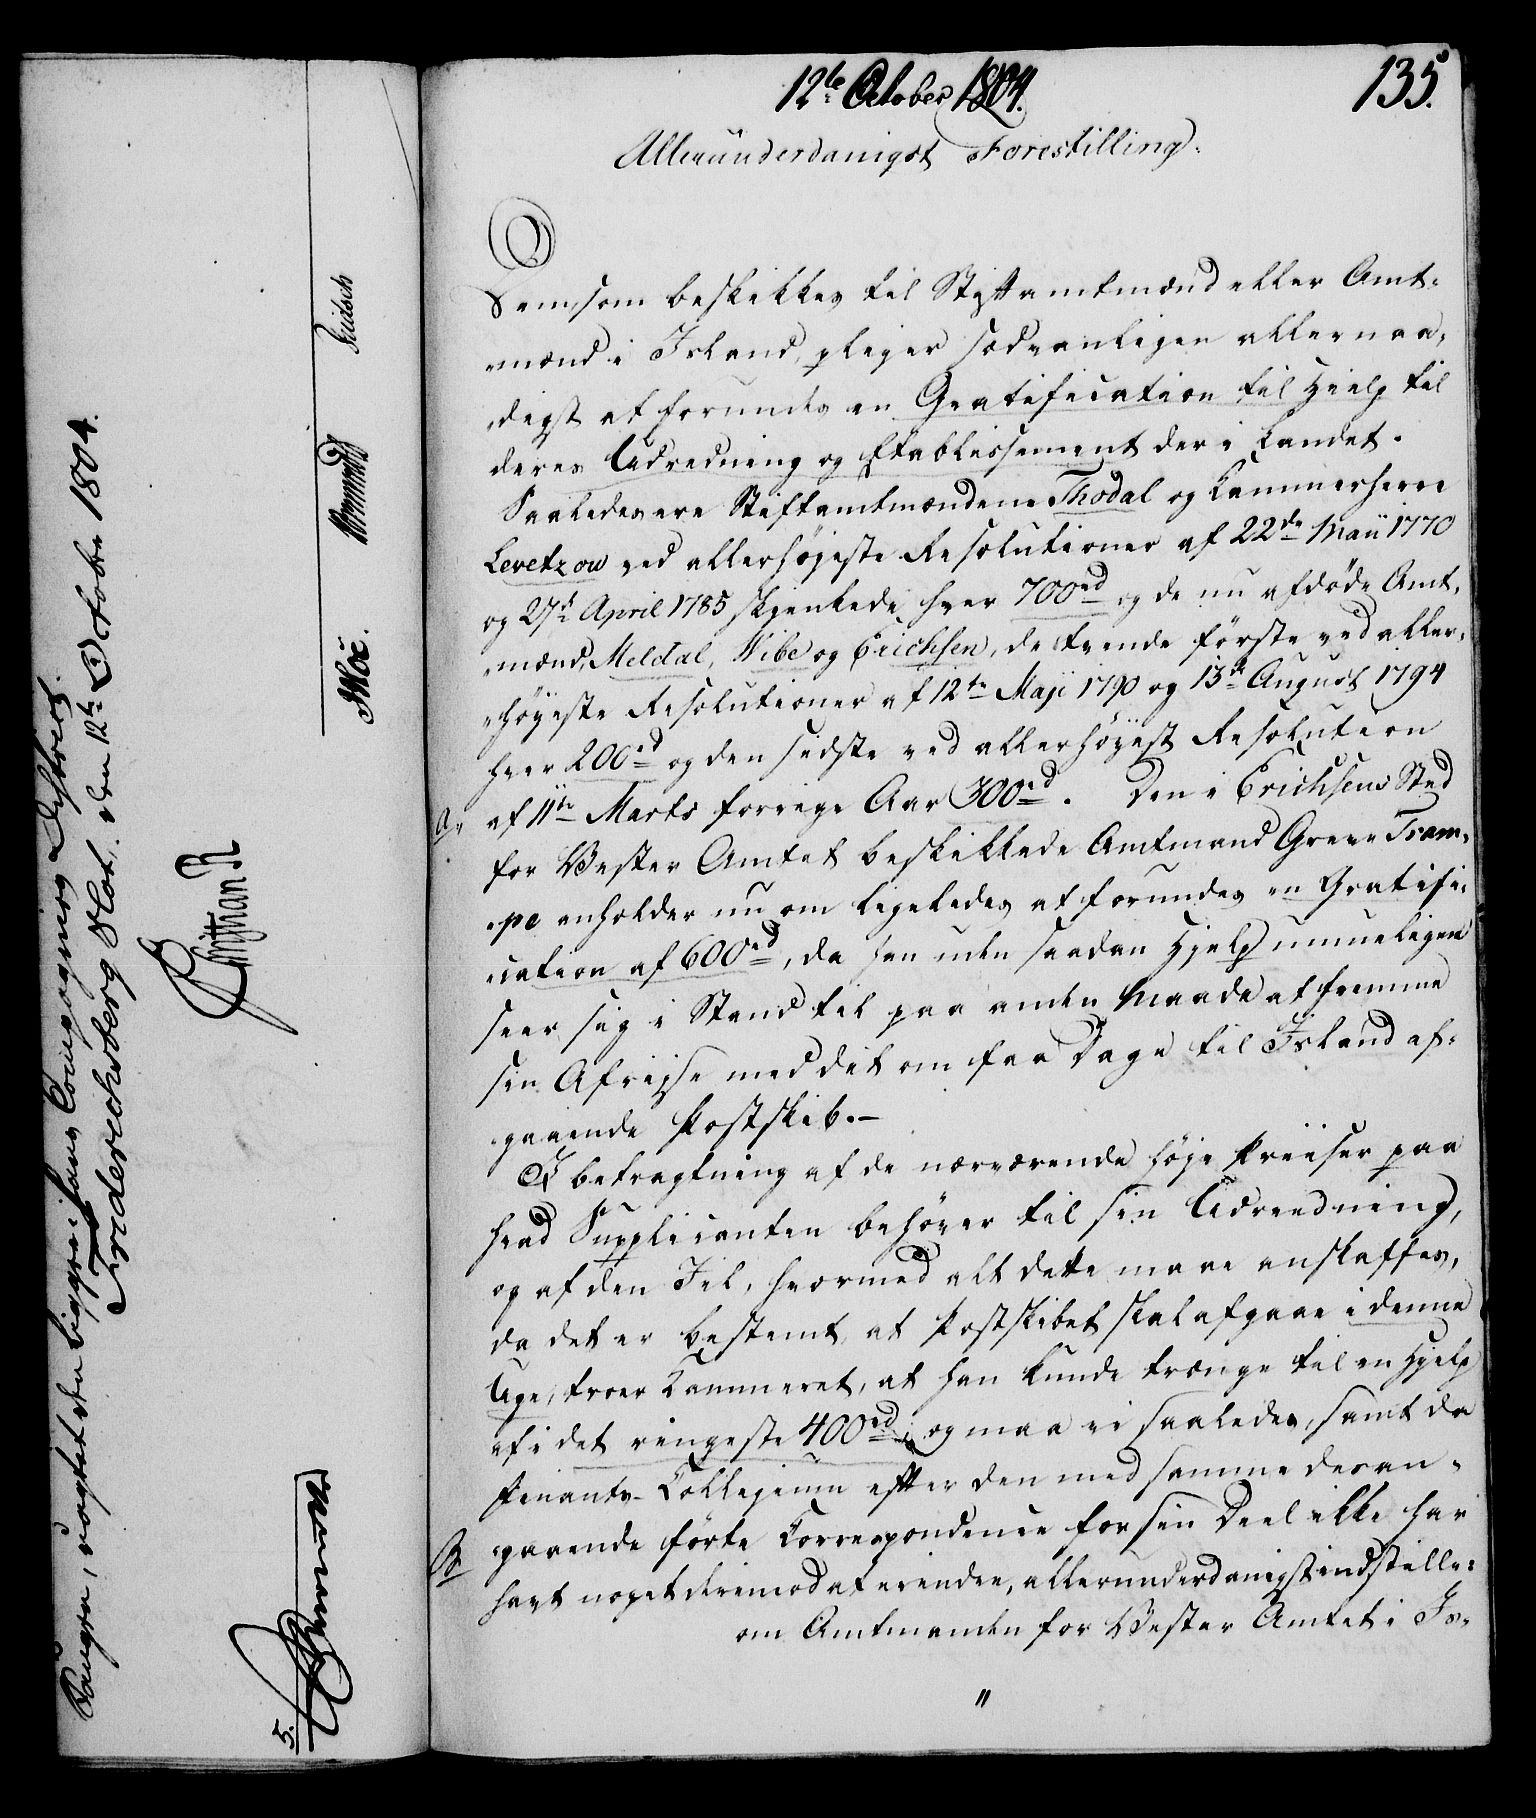 12te October 1804.
135.
Allerunderdanigst Forestilling.
Demsom beskikkes til Stiftamtmænd eller Amt-
mænd i Island, pleger sædvanligen allernaa-
digst at forundes en Gratification til Hielp til
deres Udredning og Etablissement der i Landet.
Saaledes ere Stiftamtmændene Thodal og Kammerherre
Levetzow ved allerhøjeste Resolutioner af 22de Maii 1770
og 27de April 1785 skienkede hver 700rd og de nu afdøde Amt-
mænd, Meldal, Vibe og Erichsen, de tvende første ved aller-
høyeste Resolutioner af 12te Maji 1790 og 13de August 1794
hver 200rd og den sidste ved allerhøyest Resolution
a, af 11te Marts forrige Aar 300rd. Den i Erichsens Sted
for Vester Amtet beskikkede Amtmand Greve Tram-
pe anholder nu om ligeledes at forundes en Gratifi-
cation af 600rd, da han uden saadan Hjelp umueligen
seer sig i Stand til paa anden Maade at fremme
sin Afrejse med det om faa Dage til Island af-
gaaende Postskib.-
I betragtning af de nærværende høje Priiser paa
hvad Supplicanten behøver til sin Udreedning,
og af den Iil, hvormed alt dette maae anskaffes,
da det er bestemt, at Postskibet skal afgaae i denne
Uge, troer Kammeret, at han kunde trænge til en Hjelp
af i det ringeste 400rd; og maa vi saaledes, samt da
Finants-Collegium efter den med samme desan-
B gaaende førte Correspondence for sin Deel ikke har
havt noget derimod at erindre, allerunderdanigst indstille:
om Amtmanden for Vester Amtet i Is-
"
den 12te October 1804.
Friderichsberg Slot,
Christian R
5.
Reventlow
Moe.
Wormskiold